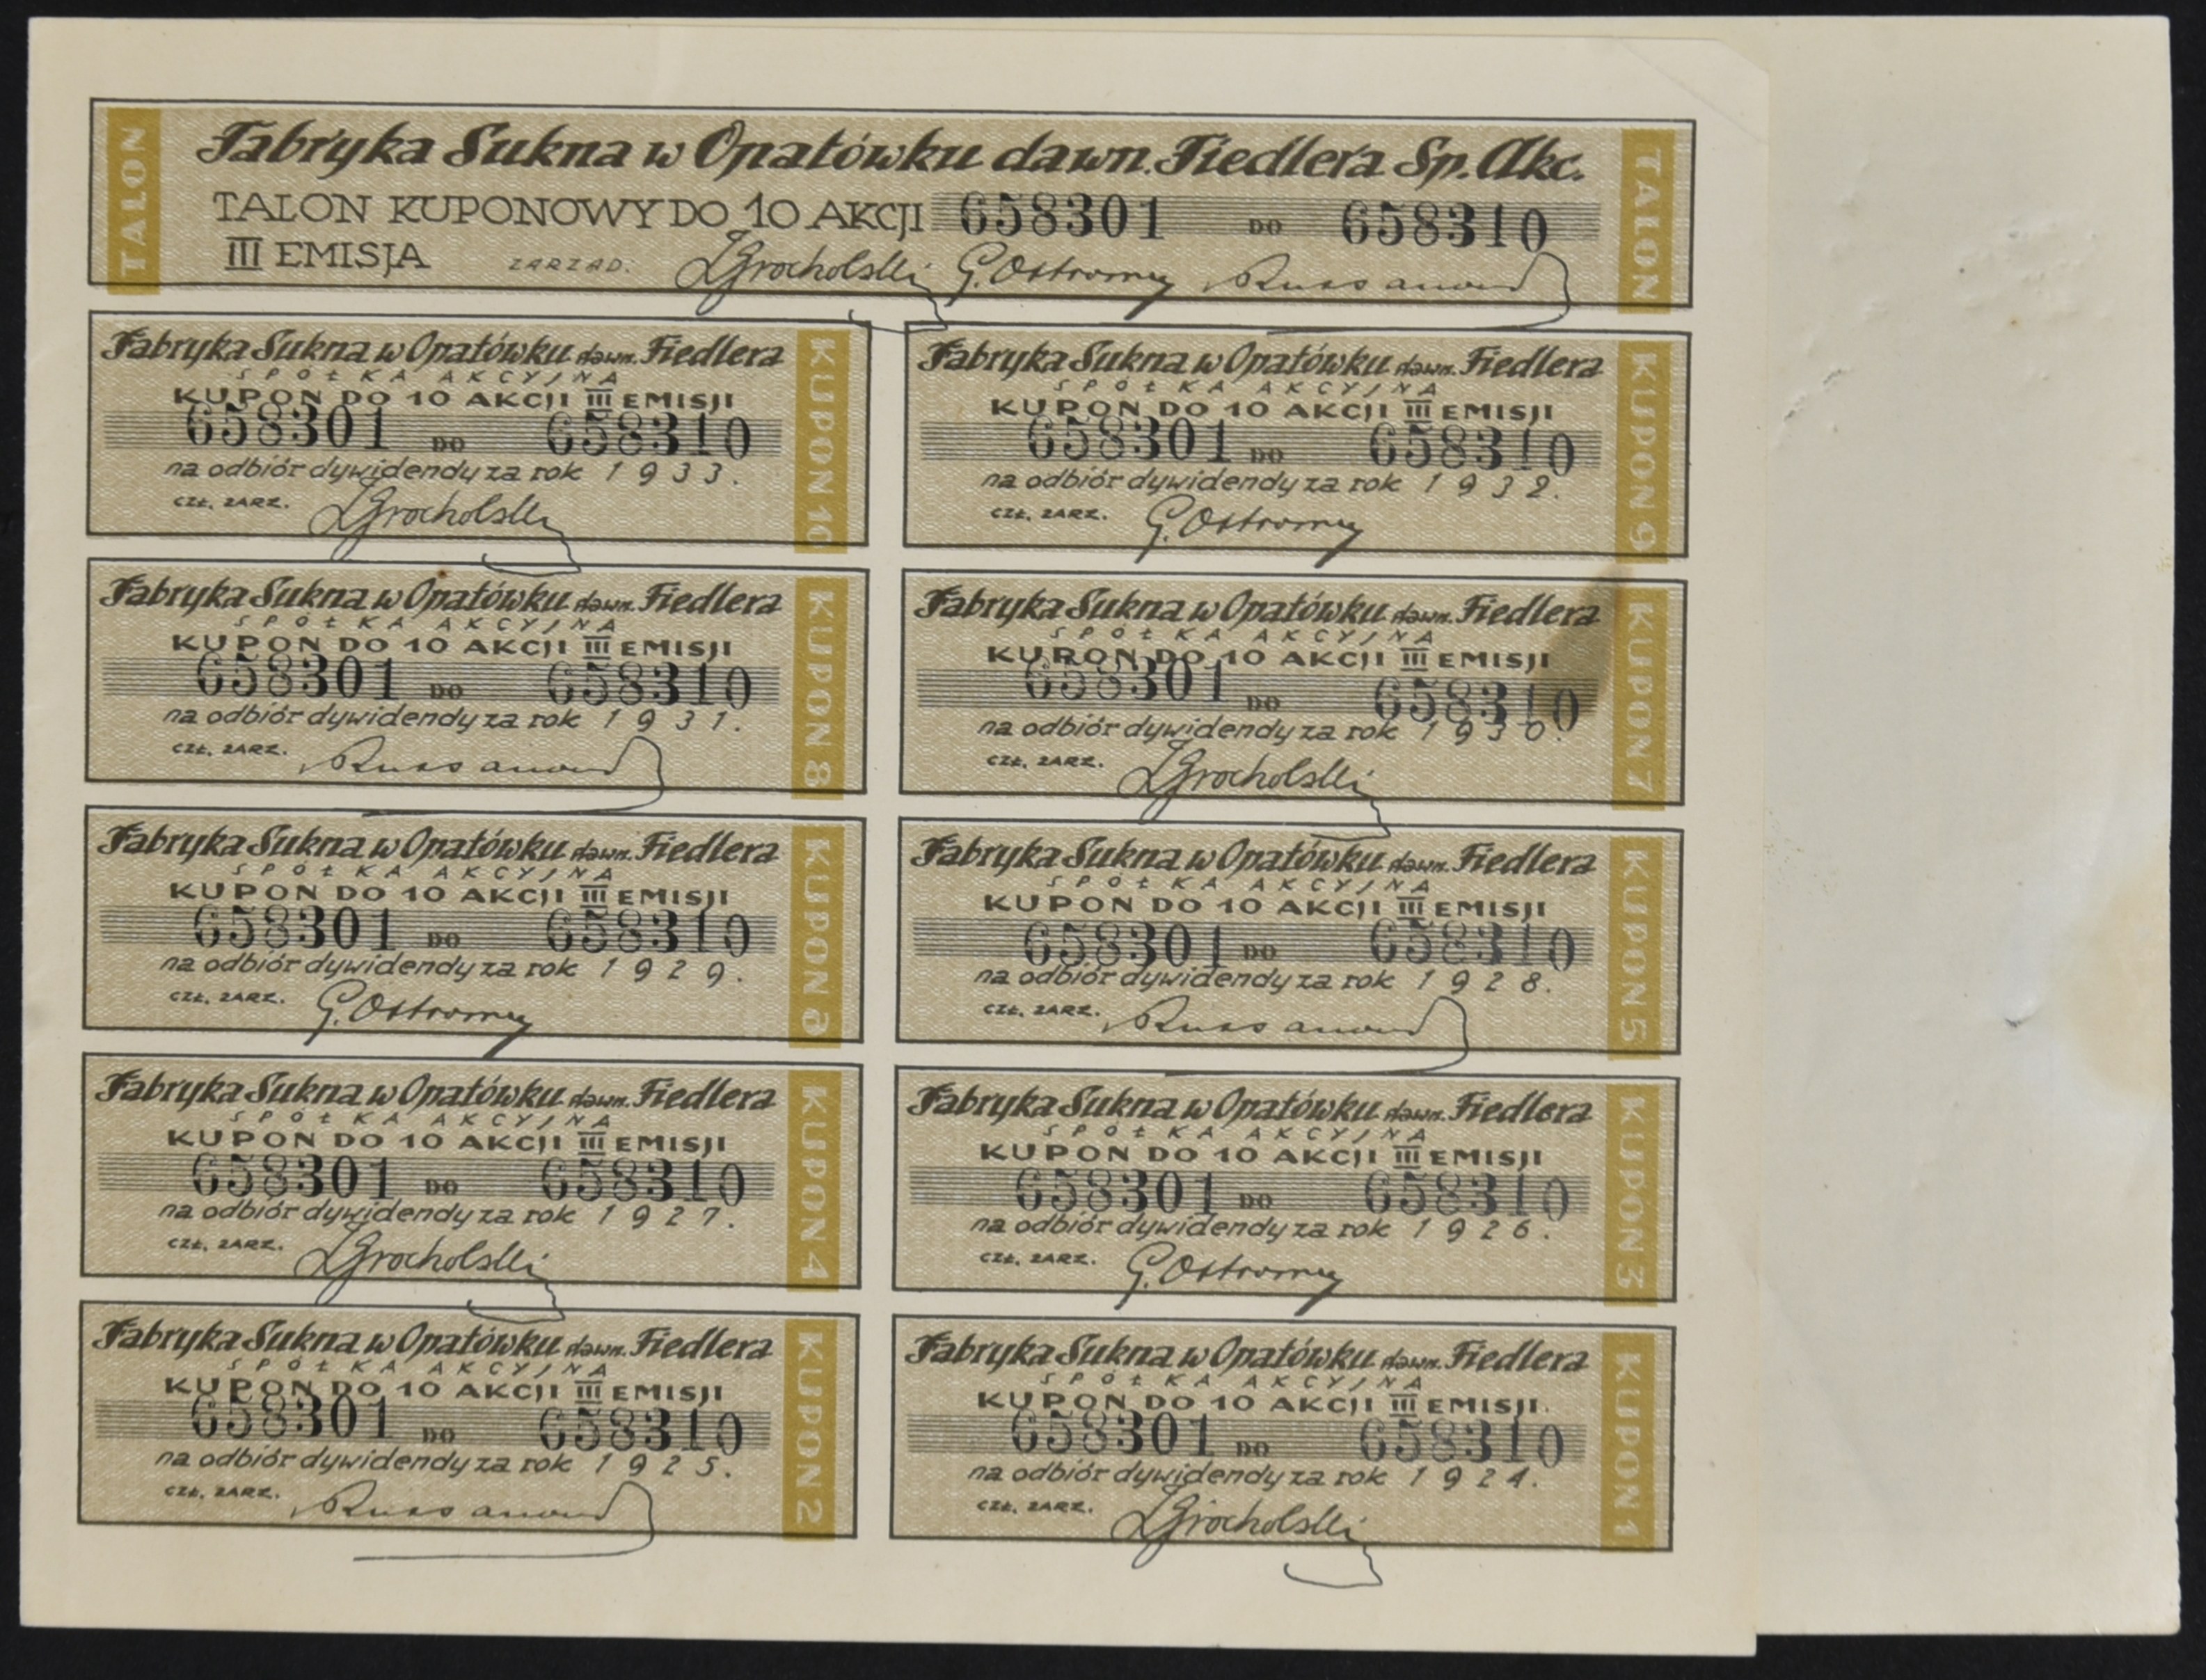 TALON
Fabryka Sukna w Opatówku dawn. Fiedlera Sp. Akc.
TALON KUPONOWY DO 10 AKCJI 658301 DO 658310
III EMISJA ZARZĄD: Grocholski G. Ostromy
TALON
Fabryka Sukna w Opatówku dawn. Fiedlera
SPÓŁKA AKCYJNA
KUPON DO 10 AKCJI III EMISJI
658301 DO 658310
na odbiór dywidendy za rok 1933.
CZŁ. ZARZ. Grocholski
KUPON 10
Fabryka Sukna w Opatówku dawn. Fiedlera
SPÓŁKA AKCYJNA
KUPON DO 10 AKCJI III EMISJI
658301 DO 658310
na odbiór dywidendy za rok 1932.
CZŁ. ZARZ. G. Ostromy
KUPON 9
Fabryka Sukna w Opatówku dawn. Fiedlera
SPÓŁKA AKCYJNA
KUPON DO 10 AKCJI III EMISJI
658301 DO 658310
na odbiór dywidendy za rok 1931.
CZŁ. ZARZ.
KUPON 8
Fabryka Sukna w Opatówku dawn. Fiedlera
SPÓŁKA AKCYJNA
KUPON DO 10 AKCJI III EMISJI
658301 DO 658310
na odbiór dywidendy za rok 1930.
CZŁ. ZARZ. Grocholski
KUPON 7
Fabryka Sukna w Opatówku dawn. Fiedlera
SPÓŁKA AKCYJNA
KUPON DO 10 AKCJI III EMISJI
658301 DO 658310
na odbiór dywidendy za rok 1929.
CZŁ. ZARZ. G. Ostromy
KUPON 6
Fabryka Sukna w Opatówku dawn. Fiedlera
SPÓŁKA AKCYJNA
KUPON DO 10 AKCJI III EMISJI
658301 DO 658310
na odbiór dywidendy za rok 1928.
CZŁ. ZARZ.
KUPON 5
Fabryka Sukna w Opatówku dawn. Fiedlera
SPÓŁKA AKCYJNA
KUPON DO 10 AKCJI III EMISJI
658301 DO 658310
na odbiór dywidendy za rok 1927.
CZŁ. ZARZ. Grocholski
KUPON 4
Fabryka Sukna w Opatówku dawn. Fiedlera
SPÓŁKA AKCYJNA
KUPON DO 10 AKCJI III EMISJI
658301 DO 658310
na odbiór dywidendy za rok 1926.
CZŁ. ZARZ. G. Ostromy
KUPON 3
Fabryka Sukna w Opatówku dawn. Fiedlera
SPÓŁKA AKCYJNA
KUPON DO 10 AKCJI III EMISJI
658301 DO 658310
na odbiór dywidendy za rok 1925.
CZŁ. ZARZ.
KUPON 2
Fabryka Sukna w Opatówku dawn. Fiedlera
SPÓŁKA AKCYJNA
KUPON DO 10 AKCJI III EMISJI.
658301 DO 658310
na odbiór dywidendy za rok 1924.
CZŁ. ZARZ. Grocholski
KUPON 1